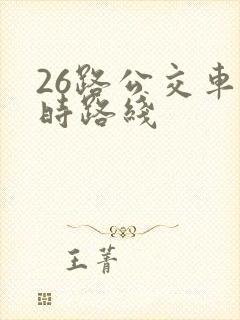 26路公交車
時路綫
王菁